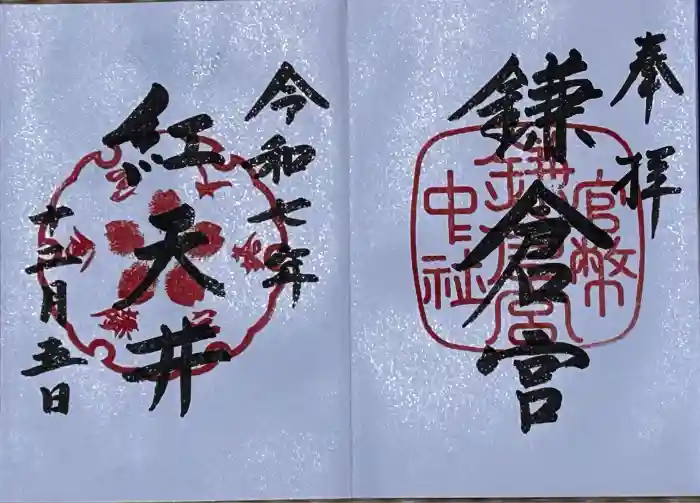 奉拝
官幣
鎌倉宮
中社
鎌倉宮
令和七年
紅天井
十二月五日